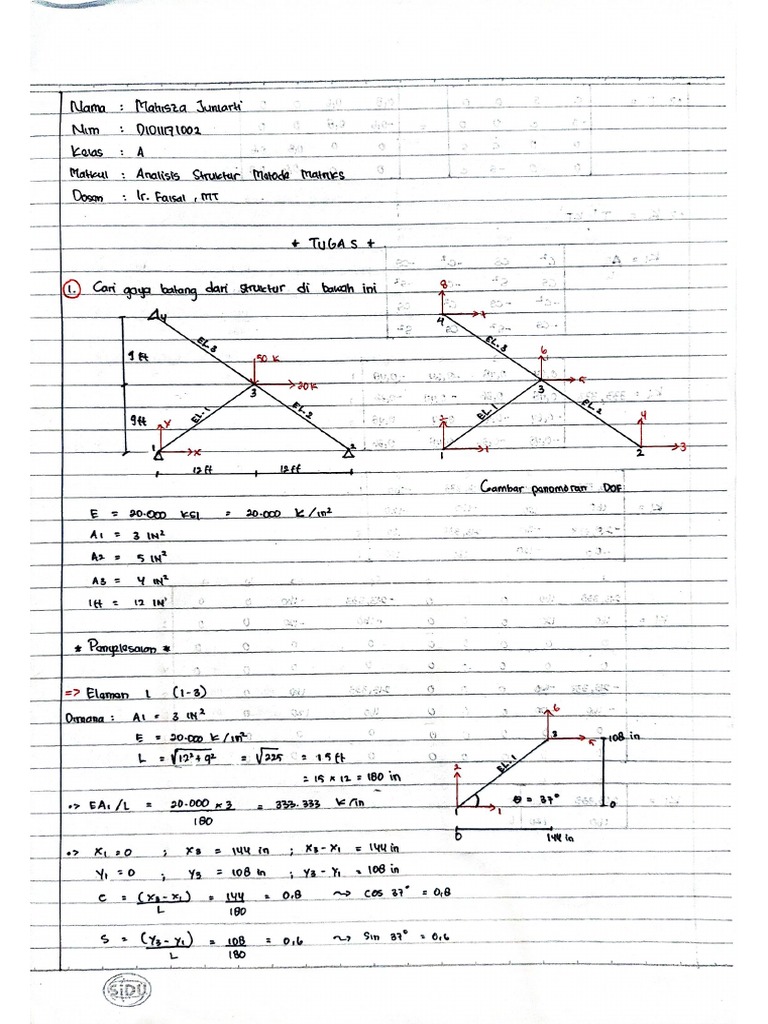 Nama : Mahisza Juniarti
Nim : D1011191002
Kelas : A
Matkul : Analisis Struktur Metode Matriks
Dosen : Ir. Faisal, MT
* TUGAS *
1. Cari gaya batang dari struktur di bawah ini
4
EL.3
9 ft
50 K
20 K
3
9 ft
EL.1
EL.2
Y
X
1
2
12 ft
12 ft
8
7
4
EL.3
6
5
3
EL.1
EL.2
2
1
1
4
3
2
Gambar penomoran DOF
E = 20.000 KSI = 20.000 K/in²
A1 = 3 IN²
A2 = 5 IN²
A3 = 4 IN²
1 ft = 12 IN
* Penyelesaian *
=> Elemen 1 (1-3)
Dimana : A1 = 3 IN²
E = 20.000 K/in²
L = √12²+9² = √225 = 15 ft
= 15 × 12 = 180 in
=> EA1/L = 20.000 × 3 / 180 = 333.333 K/in
6
5
3
108 in
EL.1
2
1
1
θ = 37°
0
0
144 in
=> X1 = 0 ; X3 = 144 in ; X3 - X1 = 144 in
Y1 = 0 ; Y3 = 108 in ; Y3 - Y1 = 108 in
C = (X3 - X1) / L = 144 / 180 = 0.8 ~> cos 37° = 0,8
S = (Y3 - Y1) / L = 108 / 180 = 0.6 ~> sin 37° = 0,6
SiDU